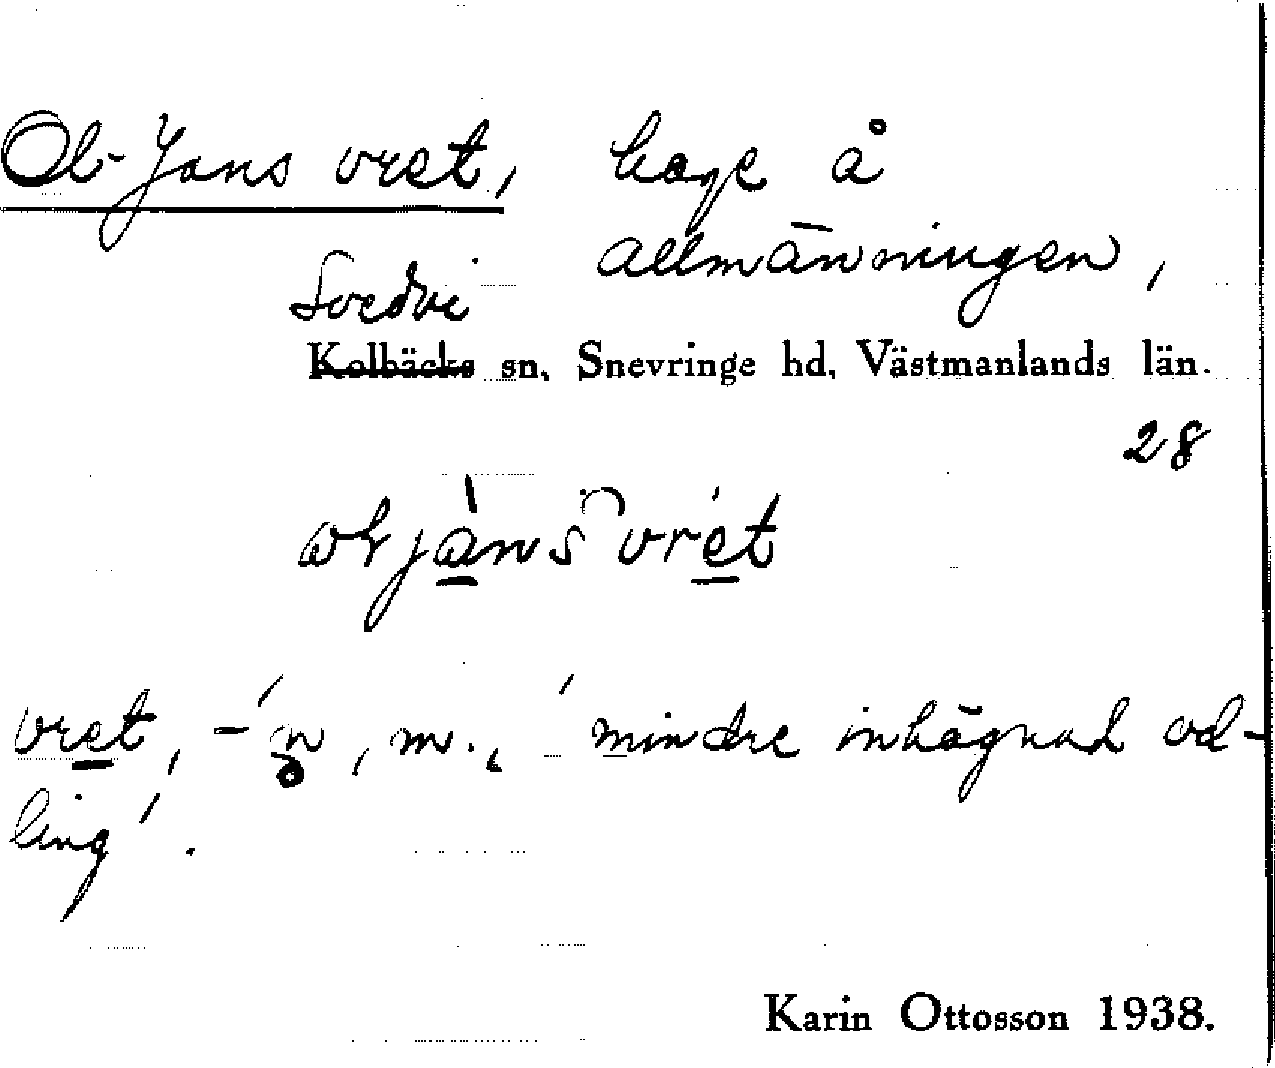 Ol-Jans vret, hage å
allmänningen,
Svedvi
Kolbäcks sn, Snevringe hd, Västmanlands län.
28
vret, -n, m., 'mindre inhägnad od-
ling'.
Karin Ottosson 1938.